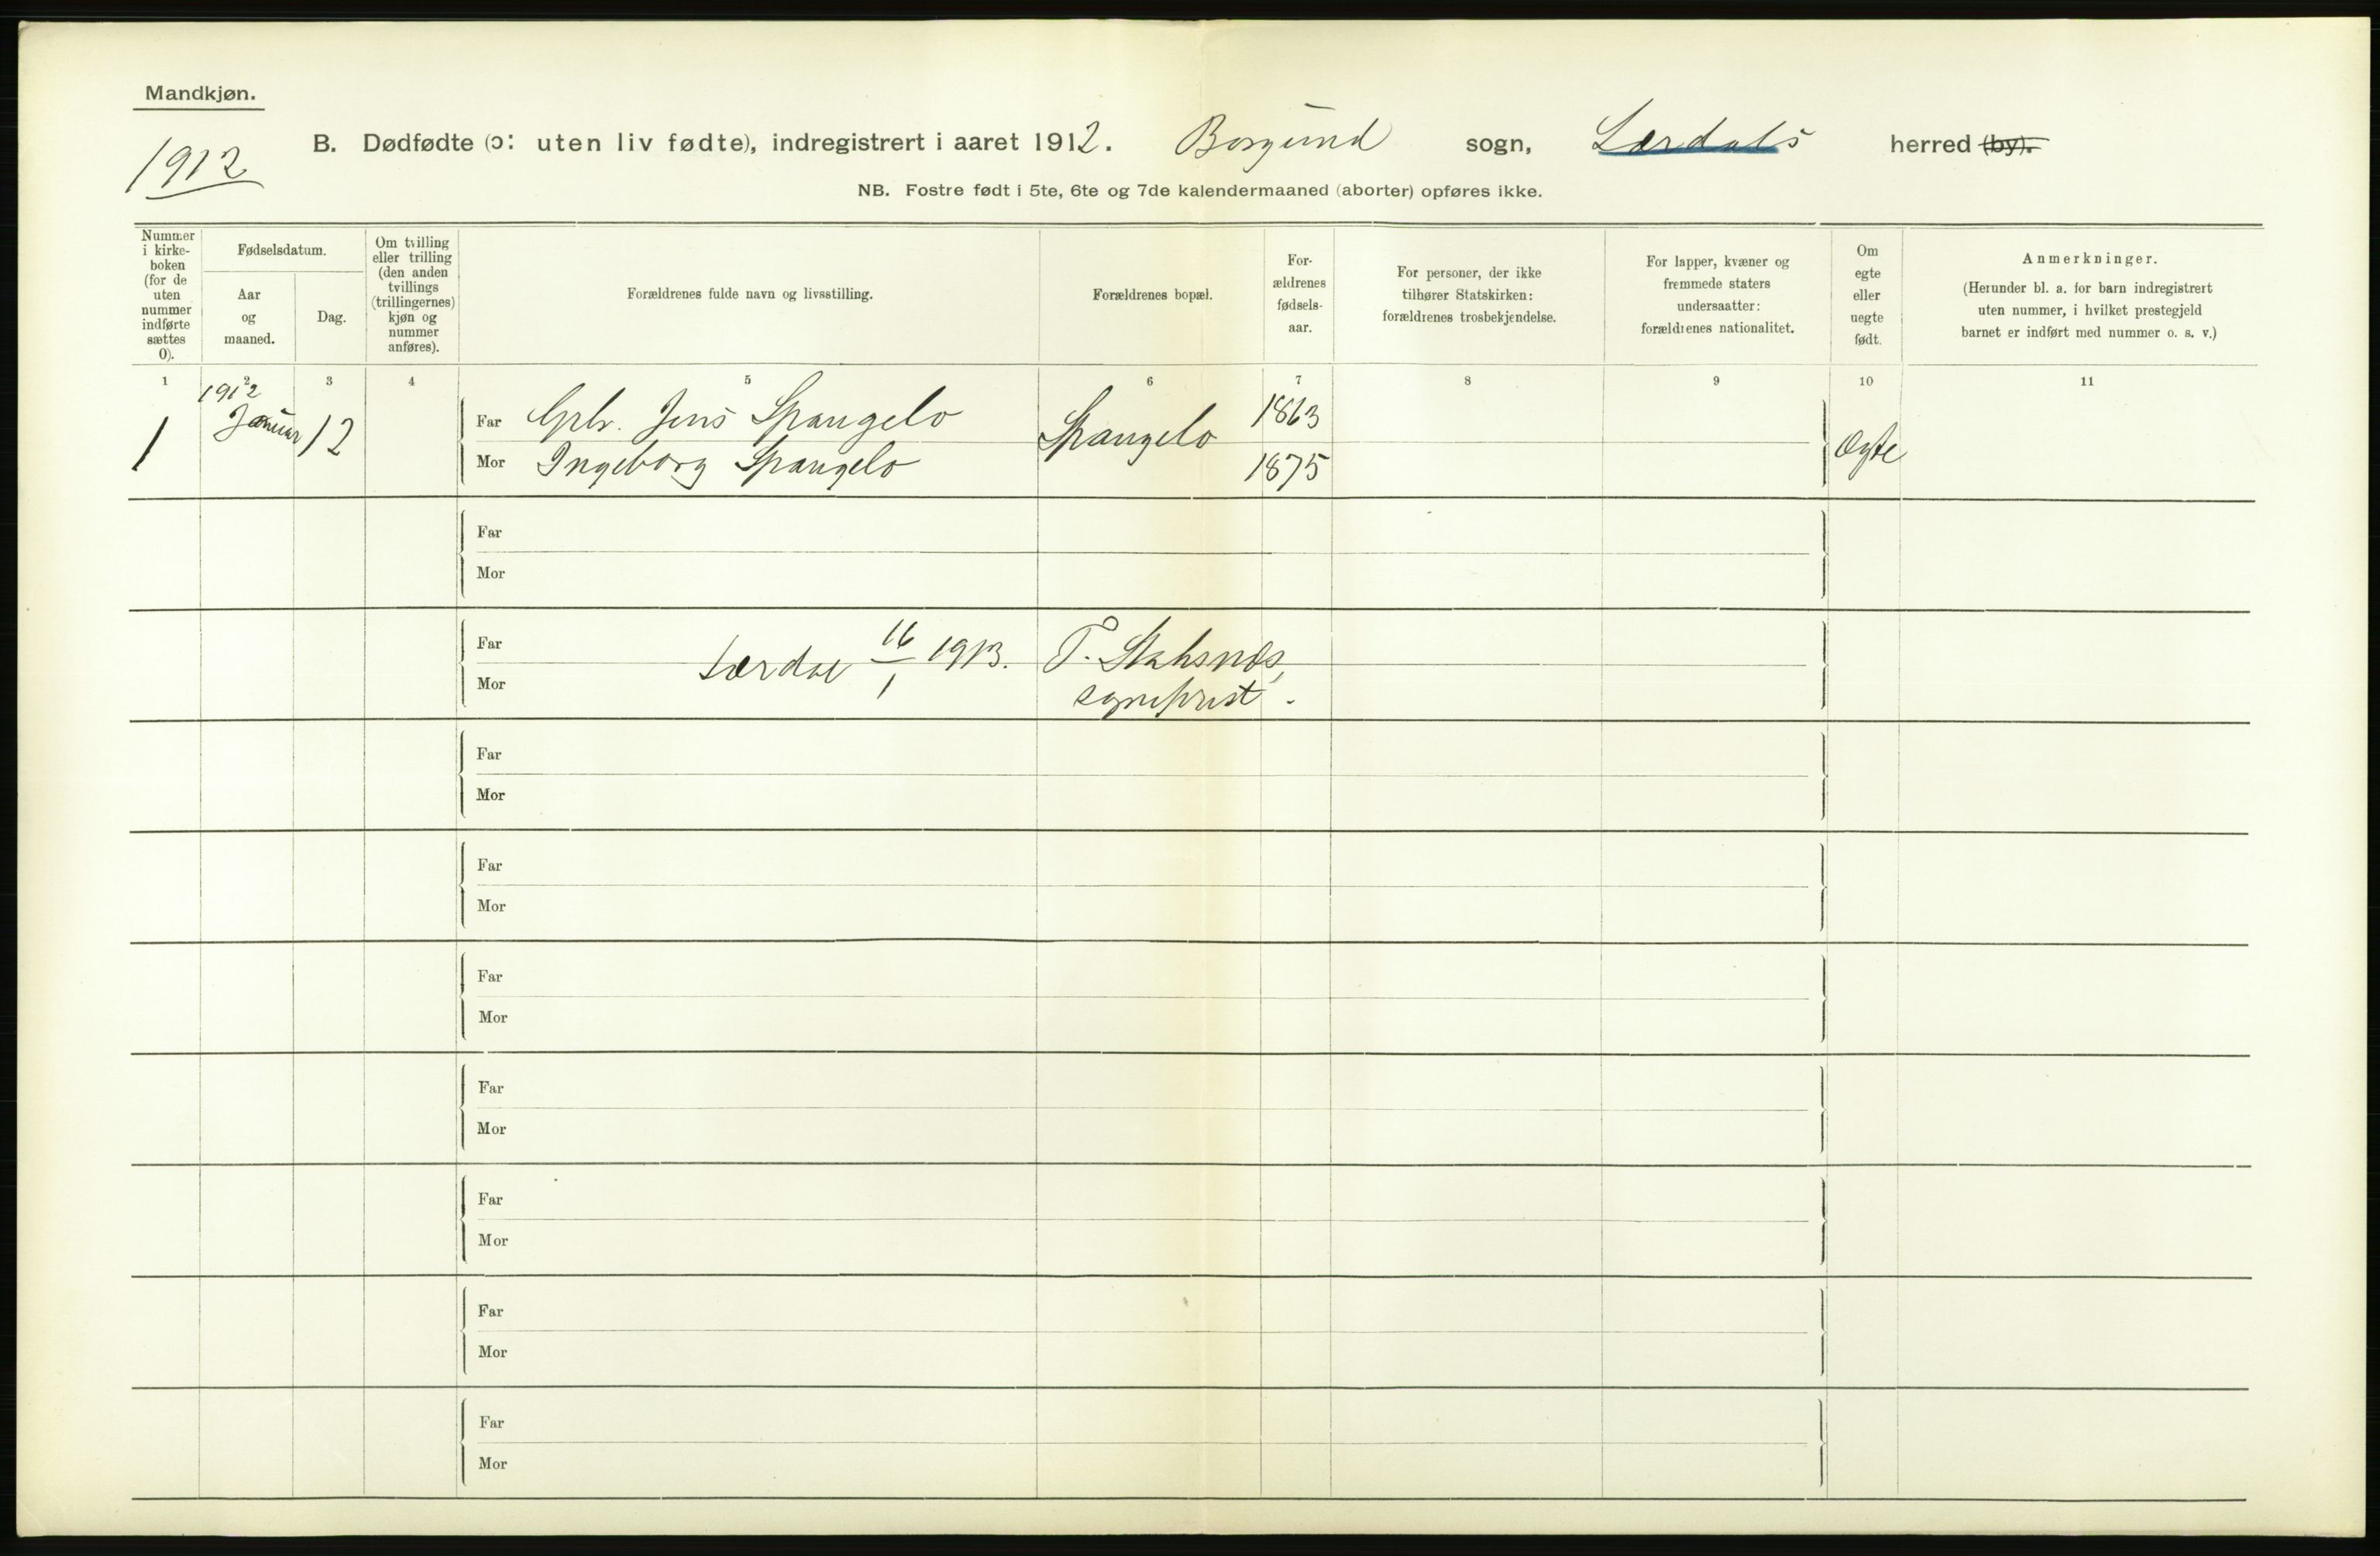 Mandkjøn.
1912
B. Dødfødte (ɔ: uten liv fødte), indregistrert i aaret 1912. Borgund sogn, Lærdals herred (by).
NB. Fostre født i 5te, 6te og 7de kalendermaaned (aborter) opføres ikke.
Nummer
i kirke-
boken
(for de
uten
nummer
indførte
sættes
0).
Fødselsdatum.
Aar
og
maaned.
Dag.
Om tvilling
eller trilling
(den anden
tvillings
(trillingernes)
kjøn og
nummer
anføres).
Forældrenes fulde navn og livsstilling.
Forældrenes bopæl.
For-
ældrenes
fødsels-
aar.
For personer, der ikke
tilhører Statskirken:
forældrenes trosbekjendelse.
For lapper, kvæner og
fremmede staters
undersaatter:
forældrenes nationalitet.
Om
egte
eller
uegte
født.
Anmerkninger.
(Herunder bl. a. for barn indregistrert
uten nummer, i hvilket prestegjeld
barnet er indført med nummer o. s. v.)
1 2 3 4 5 6 7 8 9 10 11
1912
1 Januar 12
Far Gbr. Jens Spangelo Spangelo 1863
Mor Ingeborg Spangelo 1875
Ægte
Far
Mor
Far
Mor
Lærdal 16/1 1913. T.
sogneprest.
Far
Mor
Far
Mor
Far
Mor
Far
Mor
Far
Mor
Far
Mor
Far
Mor